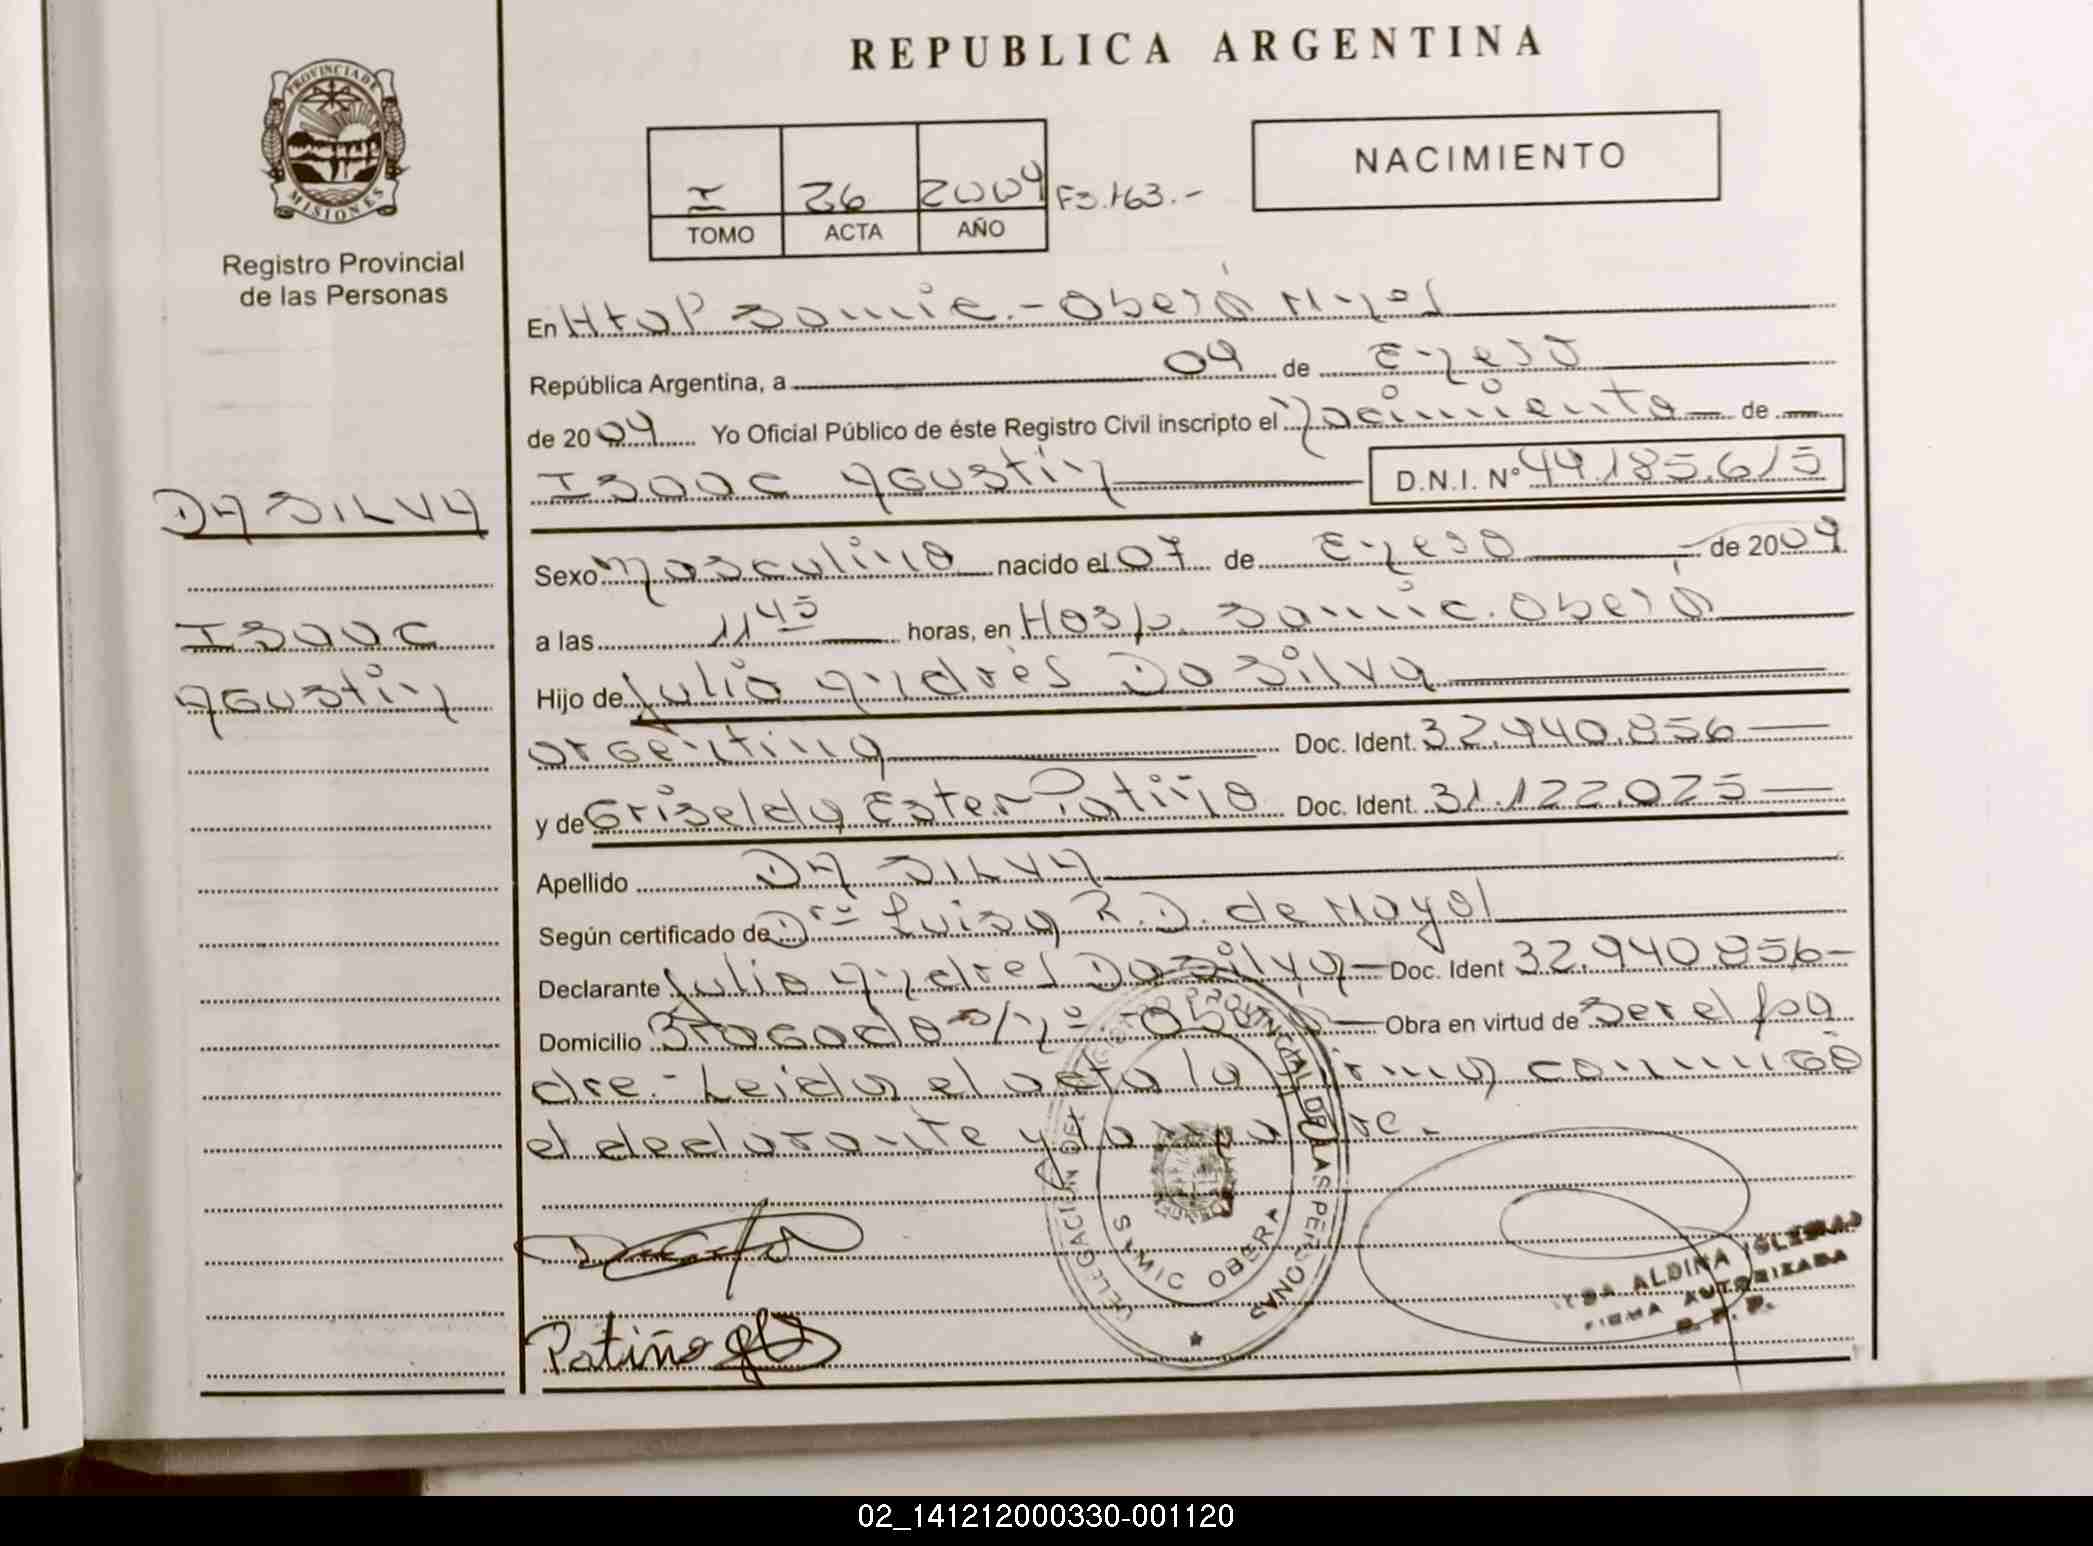 REPUBLICA ARGENTINA
PROVINCIA DE MISIONES
Registro Provincial
de las Personas
I 26 2004 F3.163.-
TOMO ACTA AÑO
NACIMIENTO
En Htal Samic.- Oberá Mnes
República Argentina, a 09 de Enero
de 2004 Yo Oficial Público de éste Registro Civil inscripto el Nacimiento de
Isaac Agustin D.N.I. Nº 44.185.615
DA SILVA
Isaac
Agustin
Sexo Masculino nacido el 07 de Enero de 2004
a las 11 45 horas, en Hosp. Samic. Oberá
Hijo de Julio Andrés Da Silva
argentina Doc. Ident. 32.940.856
y de Griselda Ester Patiño Doc. Ident. 31.122.025
Apellido DA SILVA
Según certificado de Dra Luisa R. D. de Mayol
Declarante Julio Andres Da Silva Doc. Ident 32.940.856-
Domicilio s/nº.- Oberá Obra en virtud de ser el pa
dre.- Leida el acta la firman conmigo
el declarante y la madre.-
Patiño
DELEGACION DEL REGISTRO PROVINCIAL DE LAS PERSONAS
SAMIC OBERA
ALDINA IGLESIAS
FIRMA AUTORIZADA
R. P. P.
02_141212000330-001120